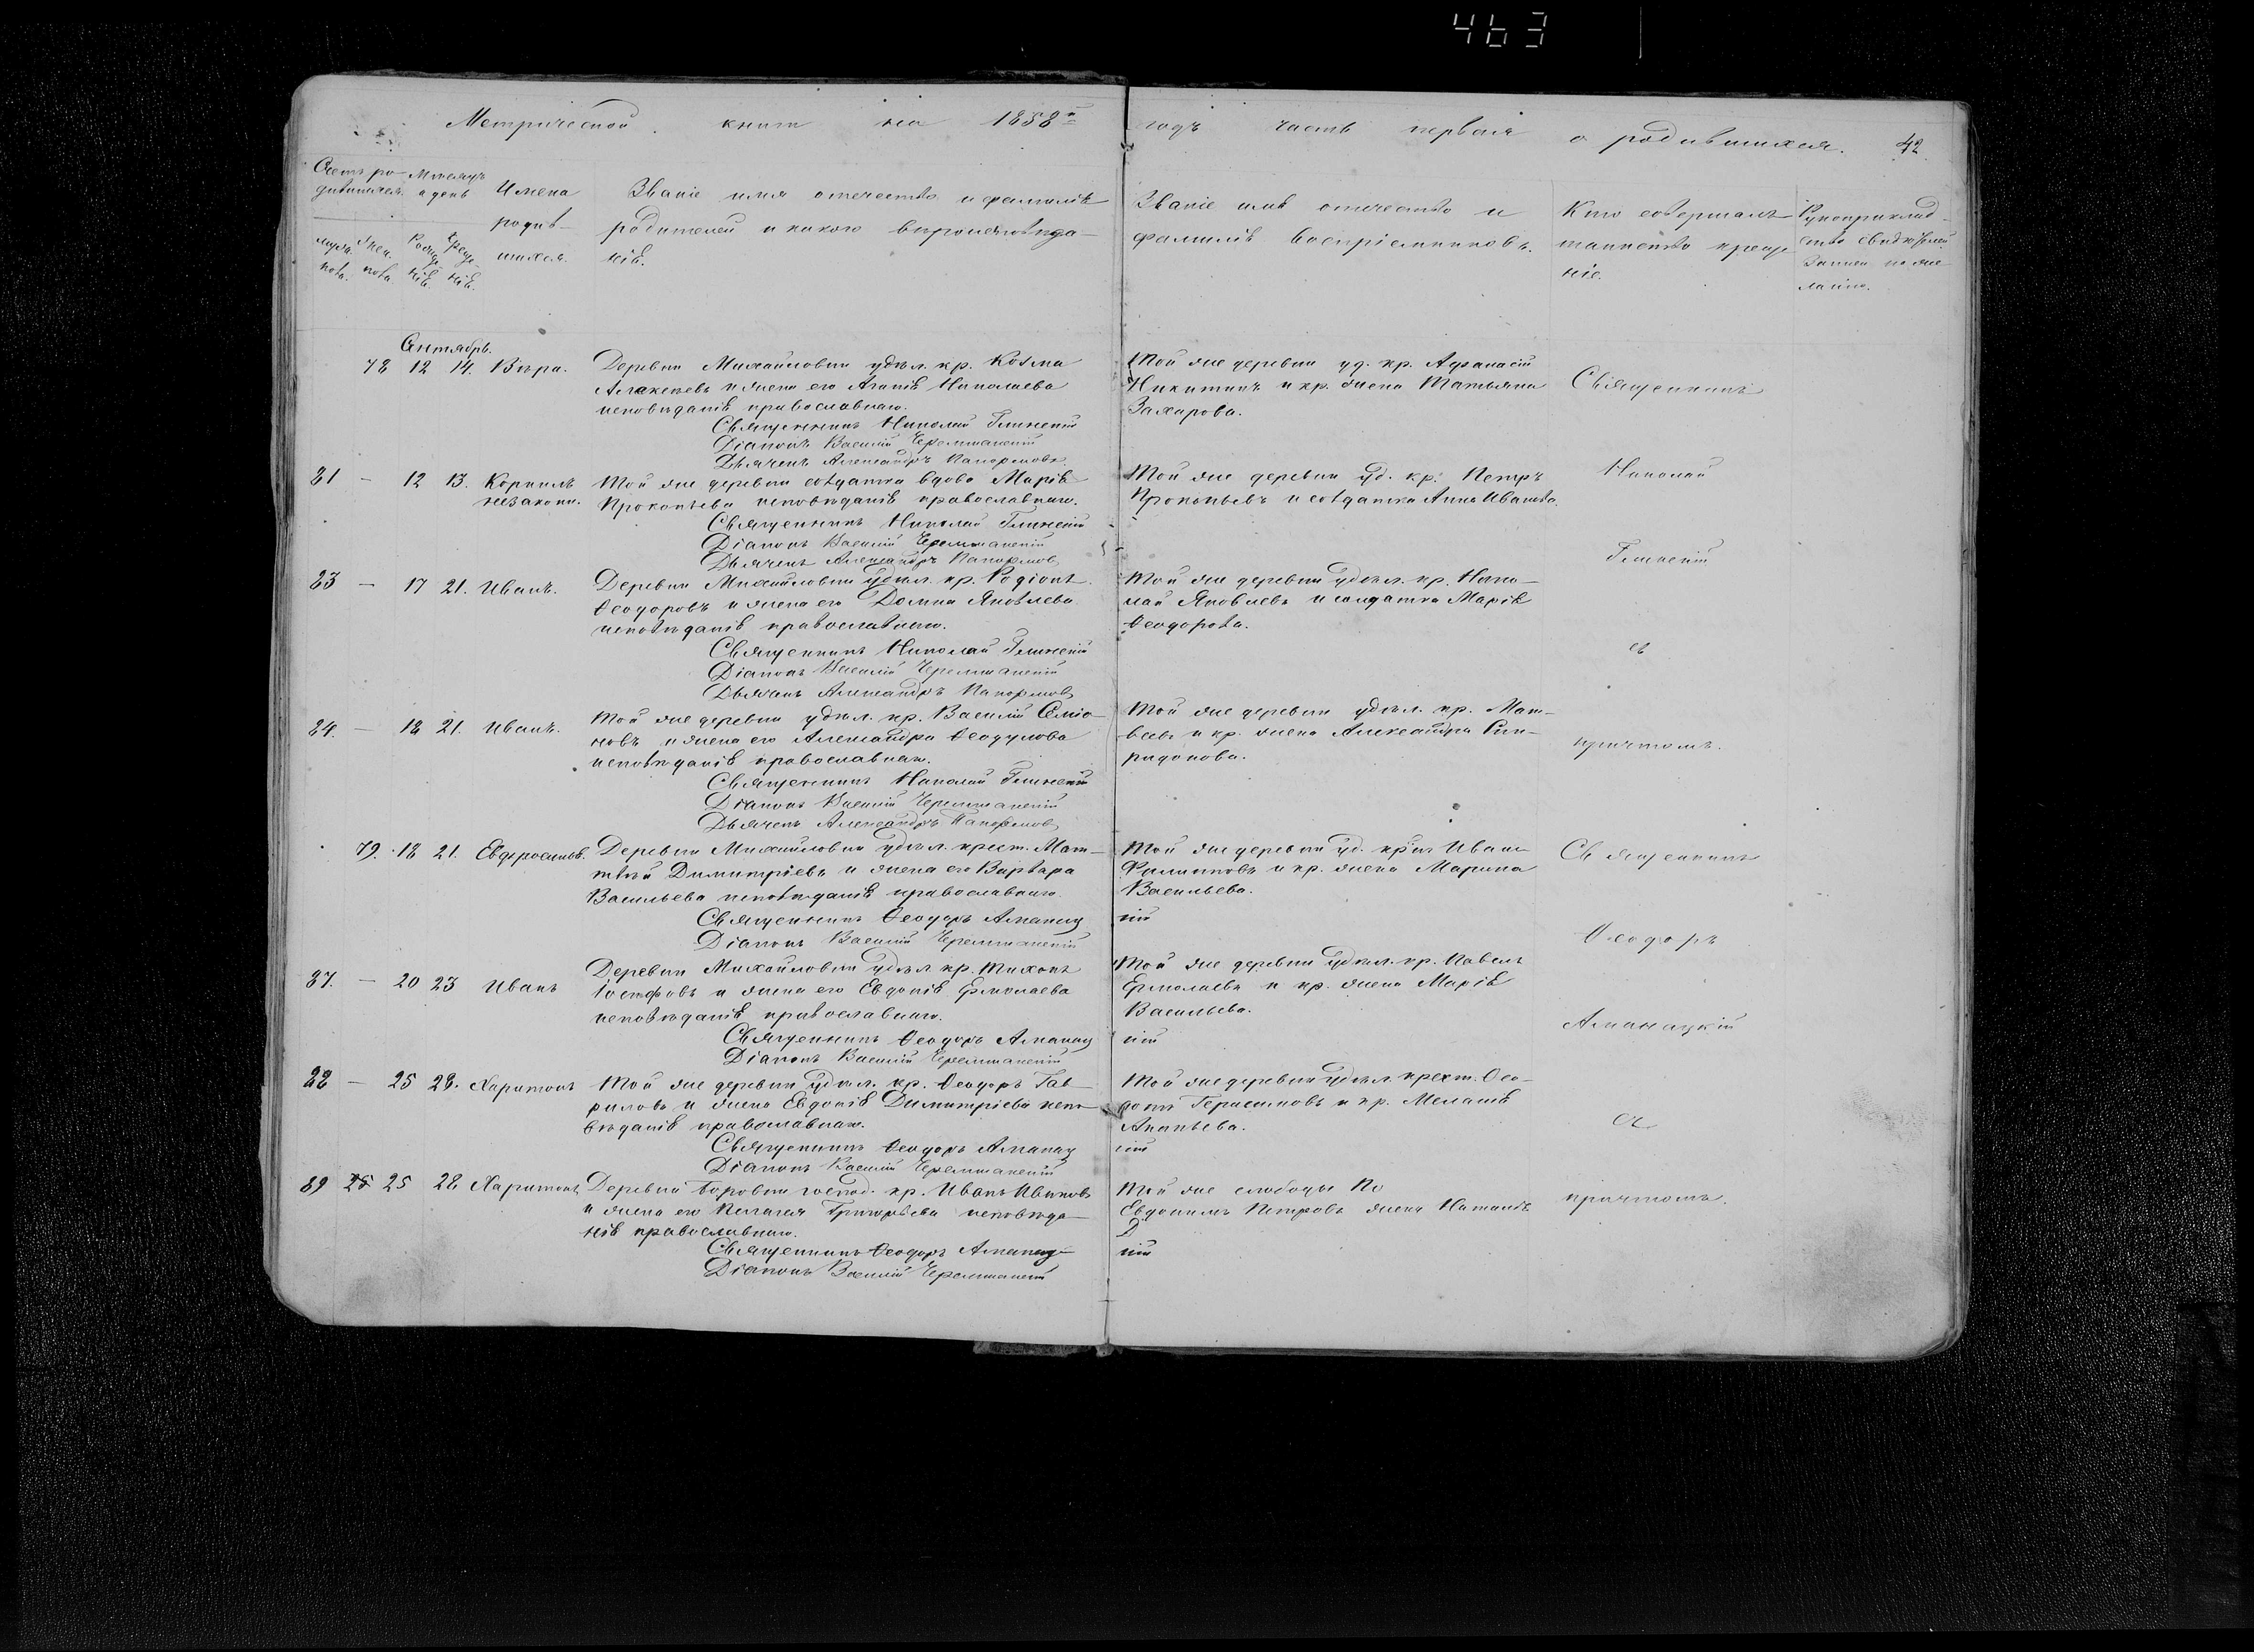 463
Метрической книги на 1858й годъ часть первая о родившихся. 42
Счетъ родившихся
Мѣсяцъ и день
Имена родившихся.
Званіе имя отечество и фамилія
родителей и какого вѣроисповѣда-
нія.
Званіе имя отечество и
фамилія воспріемниковъ.
Кто совершалъ
таинство креще
нія.
Рукоприклад-
ство свидѣтелей
записи по же
ланію.
Сентябрь.
78 12 14. Вѣра.
Деревни Михайловки удѣл. кр. Козма
и жена его Агапія Николаева
исповѣданія православнаго.
Священникъ Николай Глинскій
Діаконъ Василій Черемшанскій
Дьячекъ Александръ
Той же деревни уд. кр. Афанасій
Никитинъ и кр. жена Татьяна
Захарова.
Священникъ
81 – 12 13. Корнилъ
незакон.
Той же деревни солдатка вдова Марія
Прокопьева исповѣданія православнаго.
Священникъ Николай Глинскій
Діаконъ Василій Черемшанскій
Дьячекъ Александръ
Той же деревни уд. кр. Петръ
Прокопьевъ и солдатка Анна Иванова.
Николай
Глинскій
83 – 17 21. Иванъ.
Деревни Михайловки удѣл. кр. Родіонъ
Ѳеодоровъ и жена его Домна Яковлева
исповѣданія православнаго.
Священникъ Николай Глинскій
Діаконъ Василій Черемшанскій
Дьячекъ Александръ
Той же деревни удѣл. кр. Нико-
лай Яковлевъ и солдатка Марія
Ѳеодорова.
съ
84. – 18 21. Иванъ.
Той же деревни удѣл. кр. Василій Семіо-
новъ и жена его Александра Ѳеодулова
исповѣданія православнаго.
Священникъ Николай Глинскій
Діаконъ Василій Черемшанскій
Дьячекъ Александръ
Той же деревни удѣл. кр. Мат-
и кр. жена Александра Спи-
ридонова.
причтомъ.
79. 18 21. Евфросинія.
Деревни Михайловки удѣл. крест. Мат-
вѣй Димитріевъ и жена его Варвара
Васильева исповѣданія православнаго.
Священникъ Ѳеодоръ
Діаконъ Василій Черемшанскій
Той же деревни уд. Иванъ
Филипповъ и кр. жена Марина
Васильева.
кій
Священникъ
Ѳеодоръ
87. – 20 23 Иванъ
Деревни Михайловки удѣл. кр. Тихонъ
Іосифовъ и жена его Евдокія Ермолаева
исповѣданія православнаго.
Священникъ Ѳеодоръ
Діаконъ Василій Черемшанскій
Той же деревни удѣл. кр. Павелъ
Ермолаевъ и кр. жена Марія
Васильева.
кій
88 – 25 28. Харитонъ
Той же деревни удѣл. кр. Ѳеодоръ Гав-
риловъ и жена Евдокія Димитріева испо-
вѣданія православнаго.
Священникъ Ѳеодоръ
Діаконъ Василій Черемшанскій
Той же деревни удѣл. крест. Ѳео-
дотъ Герасимовъ и кр. Меланія
Ананьева.
кій
съ
89 25 25 28. Харитонъ
Деревни Боровки госуд. кр. Иванъ Ивановъ
и жена его Пелагея Григорьева исповѣда-
нія православнаго.
Священникъ Ѳеодоръ
Діаконъ Василій Черемшанскій
Той же слободы По
Евдокимъ Петровъ жена Наталія
Д
кій
причтомъ.